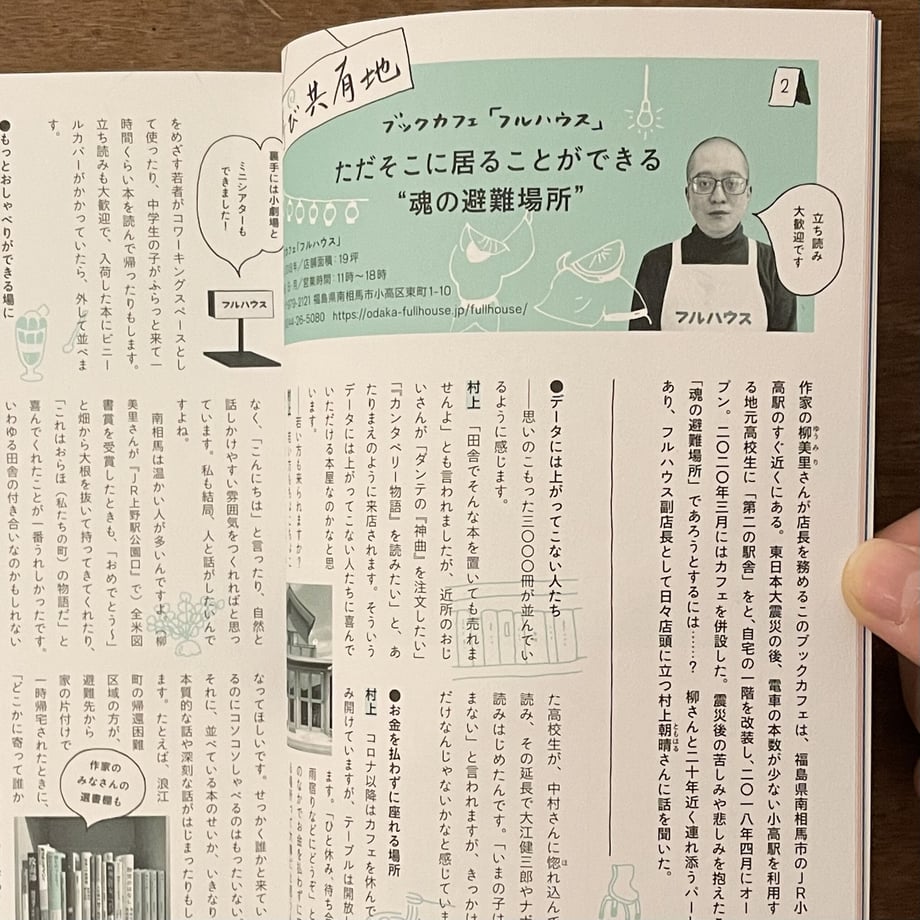 び共有地
2
ブックカフェ「フルハウス」
ただそこに居ることができる
“魂の避難場所”
立ち読み
大歓迎です
フルハウス
カフェ「フルハウス」
店舗面積：19坪
営業時間：11時〜18時
979-2121 福島県南相馬市小高区東町1-10
44-26-5080 https://odaka-fullhouse.jp/fullhouse/
作家の柳美里さんが店長を務めるこのブックカフェは、福島県南相馬市のＪＲ小
ゆうみり
高駅のすぐ近くにある。東日本大震災の後、電車の本数が少ない小高駅を利用す
る地元高校生に「第二の駅舎」をと、自宅の一階を改装し、二〇一八年四月にオー
プン。二〇二〇年三月にはカフェを併設した。震災後の苦しみや悲しみを抱えた
「魂の避難場所」であろうとするには……？　柳さんと二十年近く連れ添うパー
あり、フルハウス副店長として日々店頭に立つ村上朝晴さんに話を聞いた。
ともはる
●データには上がってこない人たち
──思いのこもった三〇〇〇冊が並んでい
るように感じます。
村上　「田舎でそんな本を置いても売れま
せんよ」とも言われましたが、近所のおじ
いさんが「ダンテの『神曲』を注文したい」
『カンタベリー物語』を読みたい」と、あ
たりまえのように来店されます。そういう
データには上がってこない人たちに喜んで
いただける本屋なのかなと思
います。
た高校生が、中村さんに惚れ込ん
ほ
読み、その延長で大江健三郎やナボ
読みはじめたんです。「いまの子は
まない」と言われますが、きっかけ
だけなんじゃないかなと感じていま
●お金を払わずに座れる場所
村上　コロナ以降はカフェを休んで
み開けていますが、テーブルは開放
ます。「ひと休み、待ち合
雨宿りなどにどうぞ」と
のなかでお金を払わずに
裏手には小劇場と
ミニシアターも
できました！
フルハウス
をめざす若者がコワーキングスペースとし
て使ったり、中学生の子がふらっと来て一
時間くらい本を読んで帰ったりもします。
立ち読みも大歓迎で、入荷した本にビニー
ルカバーがかかっていたら、外して並べま
す。
●もっとおしゃべりができる場に
なく、「こんにちは」と言ったり、自然と
話しかけやすい雰囲気をつくれればと思っ
ています。私も結局、人と話がしたいんで
すよね。
南相馬は温かい人が多いんですよ。（柳
美里さんが『ＪＲ上野駅公園口』で）全米図
書賞を受賞したときも、「おめでとう〜」
と畑から大根を抜いて持ってきてくれたり、
「これはおらほ（私たちの町）の物語だ」と
喜んでくれたことが一番うれしかったです。
いわゆる田舎の付き合いなのかもしれない
なってほしいです。せっかく誰かと来てい
るのにコソコソしゃべるのはもったいない。
それに、並べている本のせいか、いきなり
本質的な話や深刻な話がはじまったりもし
ます。たとえば、浪江
町の帰還困難
区域の方が、
避難先から
家の片付けで
一時帰宅されたときに、
「どこかに寄って誰か
作家の
みなさんの
選書棚も